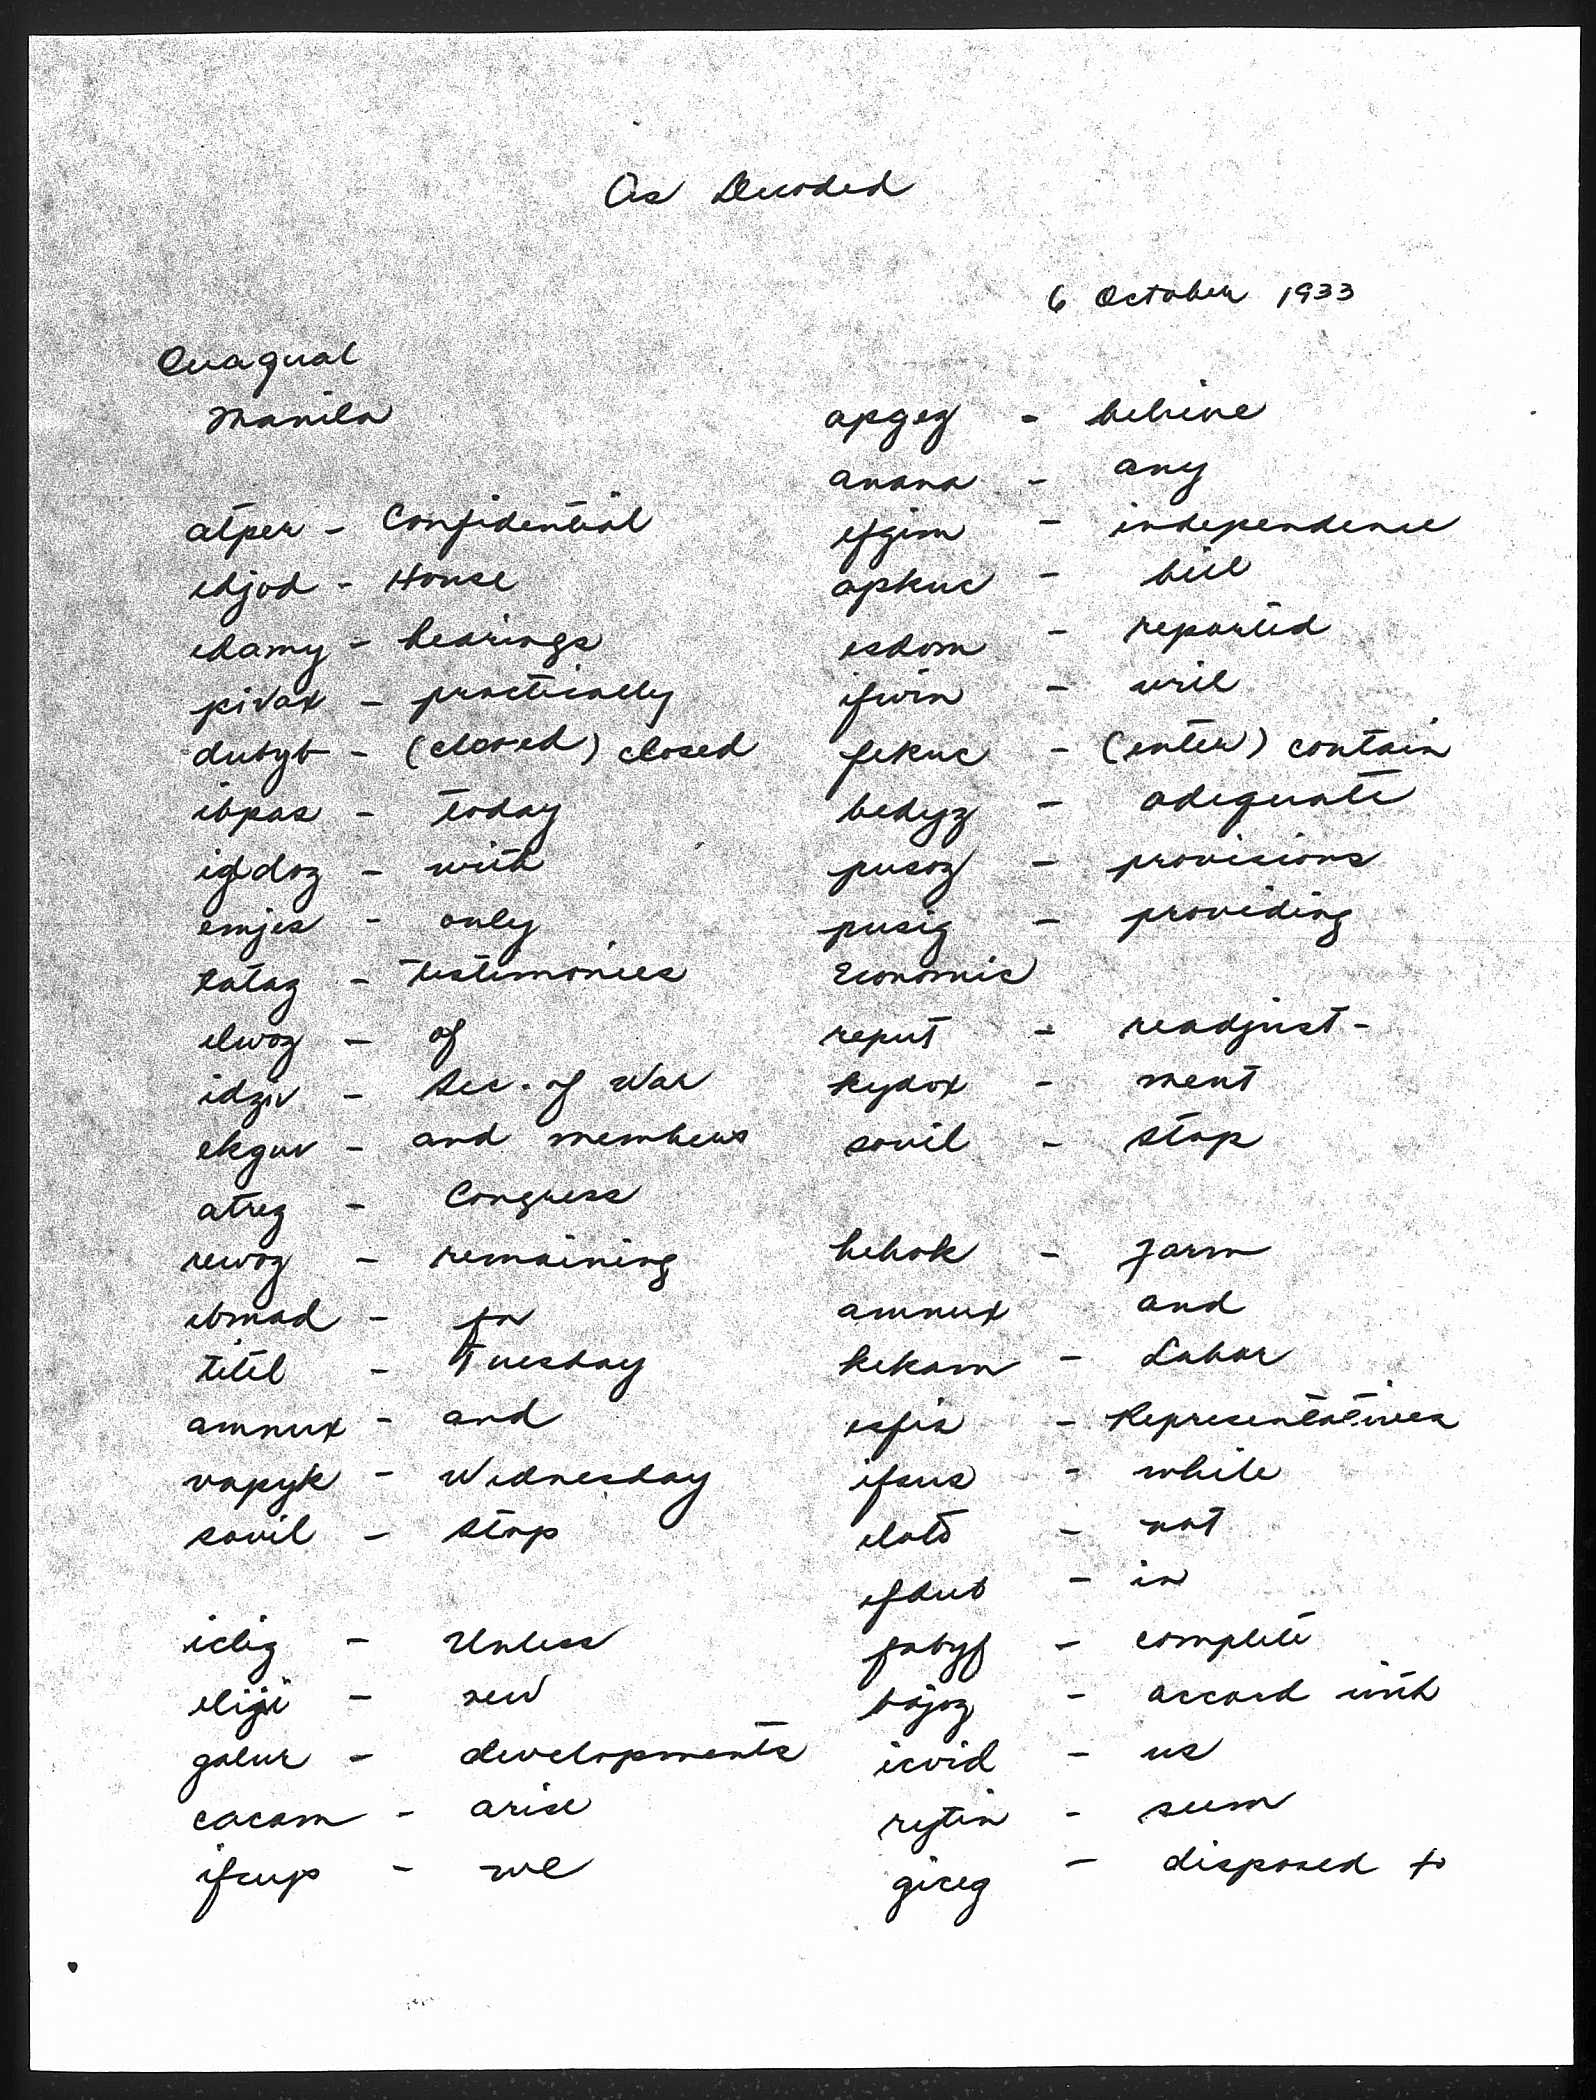 As Decoded
6 October 1933
Quaqual
Manila
atper - Confidential
ehjod - House
ehamy - hearings
pivax - practically
dubyb - (closed) closed
ibpas - today
igdoz - with
emjes - only
tataz - testimonies
elwoz - of
idziv - Sec. of War
ekguv - and members
atreg - Congress
rewoz - remaining
ebmad - for
titel - Tuesday
amnux - and
vapyk - Wednesday
sovil - stop
iclig - Unless
eligi - new
galur - developments
cacam - arise
ifcup - we
apgez - believe
anana - any
efgim - independence
apkuc - bill
esdom - reported
ifwin - will
fekuc - (enter) contain
bedyz - adequate
pusoz - provisions
pusig - providing
Economic
reput - readjust-
kydox - ment
sovil - stop
hehok - Farm
amnux - and
kekam - Labor
esfis - Representatives
ifsus - while
elato - not
efdub - in
fabyf - complete
bajoz - accord with
icvid - us
rytin - seem
giceg - disposed to